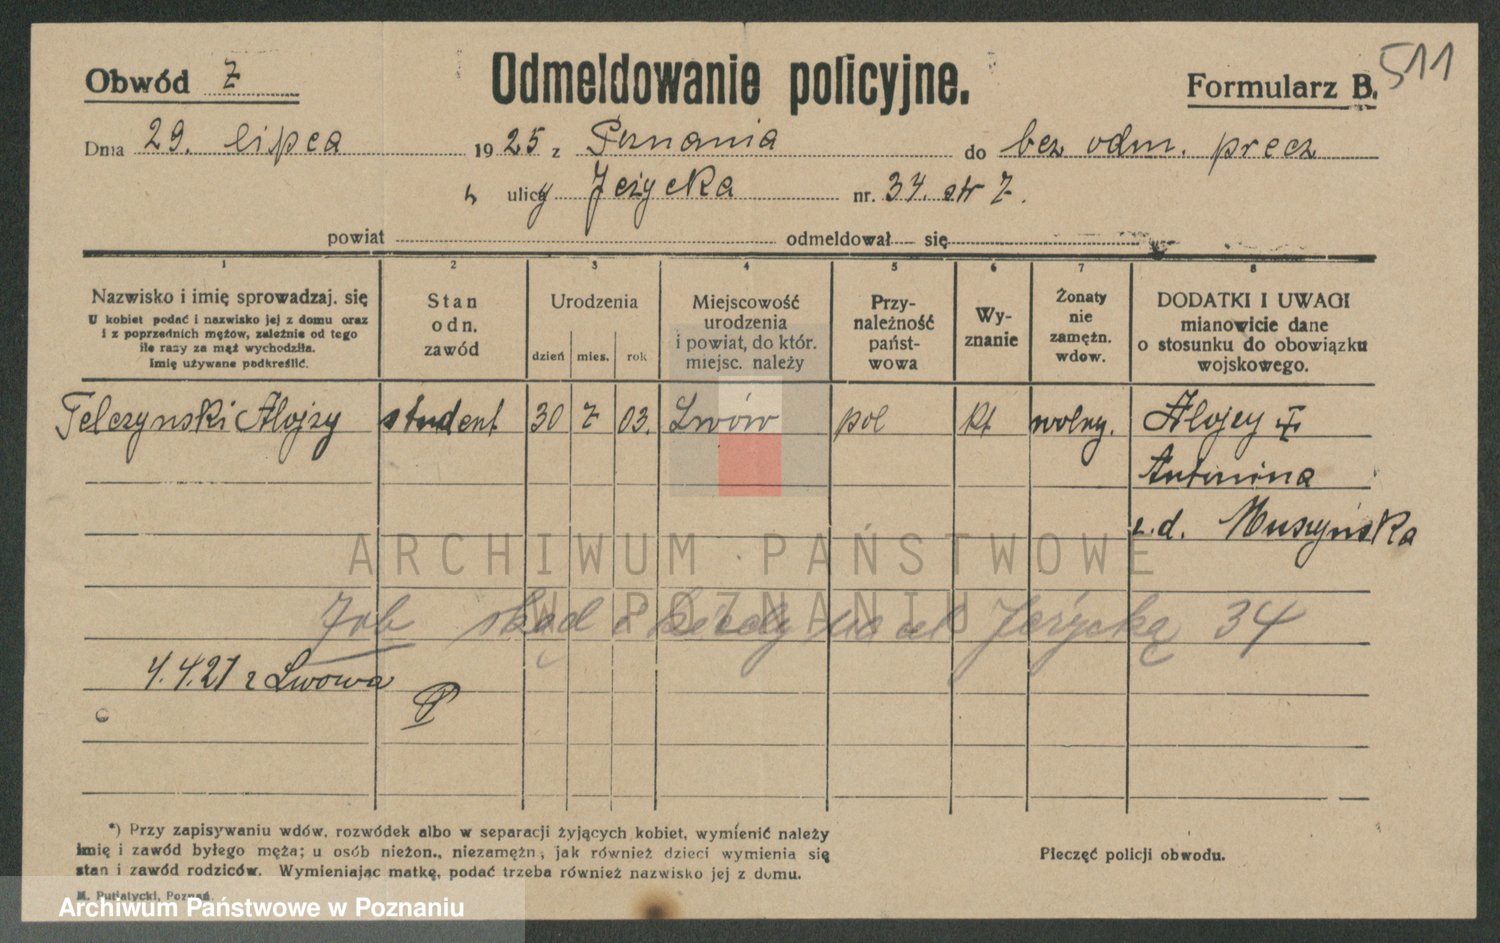 Obwód 7
Odmeldowanie policyjne.
Formularz B.
511
Dnia 29. lipca 1925 z Poznania do bez odm. precz
ulicy Jeżycka nr. 34. str 7.
powiat odmeldował się
1 2 3 4 5 6 7 8
Nazwisko i imię sprowadzaj. się
U kobiet podać i nazwisko jej z domu oraz
i z poprzednich mężów, zależnie od tego
ile razy za mąż wychodziła.
Imię używane podkreślić.
Stan
odn.
zawód
Urodzenia
dzień mies. rok
Miejscowość
urodzenia
i powiat, do któr.
miejsc. należy
Przy-
należność
państ-
wowa
Wy-
znanie
Żonaty
nie
zamężn.
wdow.
DODATKI I UWAGI
mianowicie dane
o stosunku do obowiązku
wojskowego.
Telczynski Alojzy student 30 7 03. Lwów pol kt wolny. Alojzy
Antonina
z.d. Muszyńska
ARCHIWUM PAŃSTWOWE
W POZNANIU
skąd i kiedy na ul Jeżycką 34
4.4.21 z Lwowa
*) Przy zapisywaniu wdów, rozwódek albo w separacji żyjących kobiet, wymienić należy
imię i zawód byłego męża; u osób nieżon., niezamężn., jak również dzieci wymienia się
stan i zawód rodziców. Wymieniając matkę, podać trzeba również nazwisko jej z domu.
Pieczęć policji obwodu.
M. Putiatycki, Poznań.
Archiwum Państwowe w Poznaniu